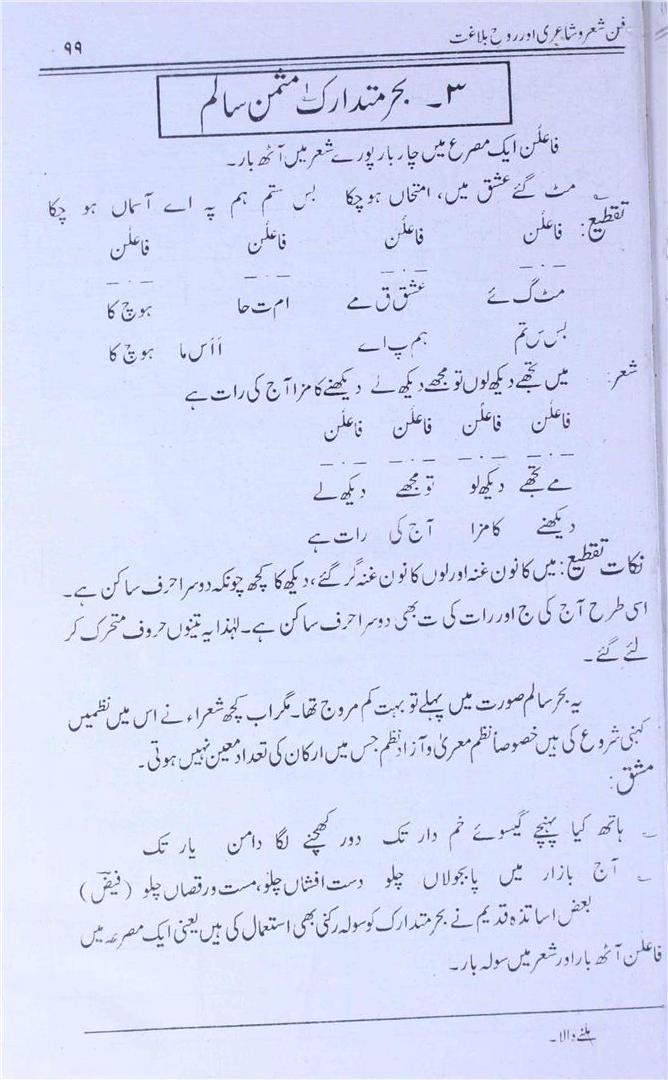 فن شعر و شاعری اور روح بلاغت
۹۹
۳۔ بحر متدارک۱ مثمن سالم
فاعلُن ایک مصرع میں چار بار پورے شعر میں آٹھ بار۔
مٹ گئے عشق میں، امتحاں ہو چکا بس ستم ہم پہ اے آسماں ہو چکا
تقطیع: فاعلُن فاعلُن فاعلُن فاعلُن
– · – – · – – · – – · –
مٹ گ ئے عشق ق مے ام ت حا ہو چ کا
بس س تم ہم پ اے اا س ما ہو چ کا
شعر: میں تجھے دیکھ لوں تو مجھے دیکھ لے دیکھنے کا مزا آج کی رات ہے
فاعلُن فاعلُن فاعلُن فاعلُن
– · – – · – – · – – · –
مے تجھے دیکھ لو تو مجھے دیکھ لے
دیکھنے کا مزا آج کی رات ہے
نکات تقطیع: میں کا نون غنہ اور لوں کا نون غنہ گر گئے، دیکھ کا کچھ چونکہ دوسرا حرف ساکن ہے۔
اسی طرح آج کی ج اور رات کی ت بھی دوسرا حرف ساکن ہے۔ لہٰذا یہ تینوں حروف متحرک کر
لئے گئے۔
یہ بحر سالم صورت میں پہلے تو بہت کم مروج تھا۔ مگر اب کچھ شعراء نے اس میں نظمیں
کہنی شروع کی ہیں خصوصاً نظم معریٰ و آزاد نظم جس میں ارکان کی تعداد معین نہیں ہوتی۔
مشق:
ہاتھ کیا پہنچے گیسوئے خم دار تک دور کھچنے لگا دامن یار تک
آج بازار میں پابجولاں چلو دست افشاں چلو، مست و رقصاں چلو (فیضؔ)
بعض اساتذہ قدیم نے بحر متدارک کو سولہ رکنی بھی استعمال کی ہیں یعنی ایک مصرعہ میں
فاعلن آٹھ بار اور شعر میں سولہ بار۔
ملنے والا۔